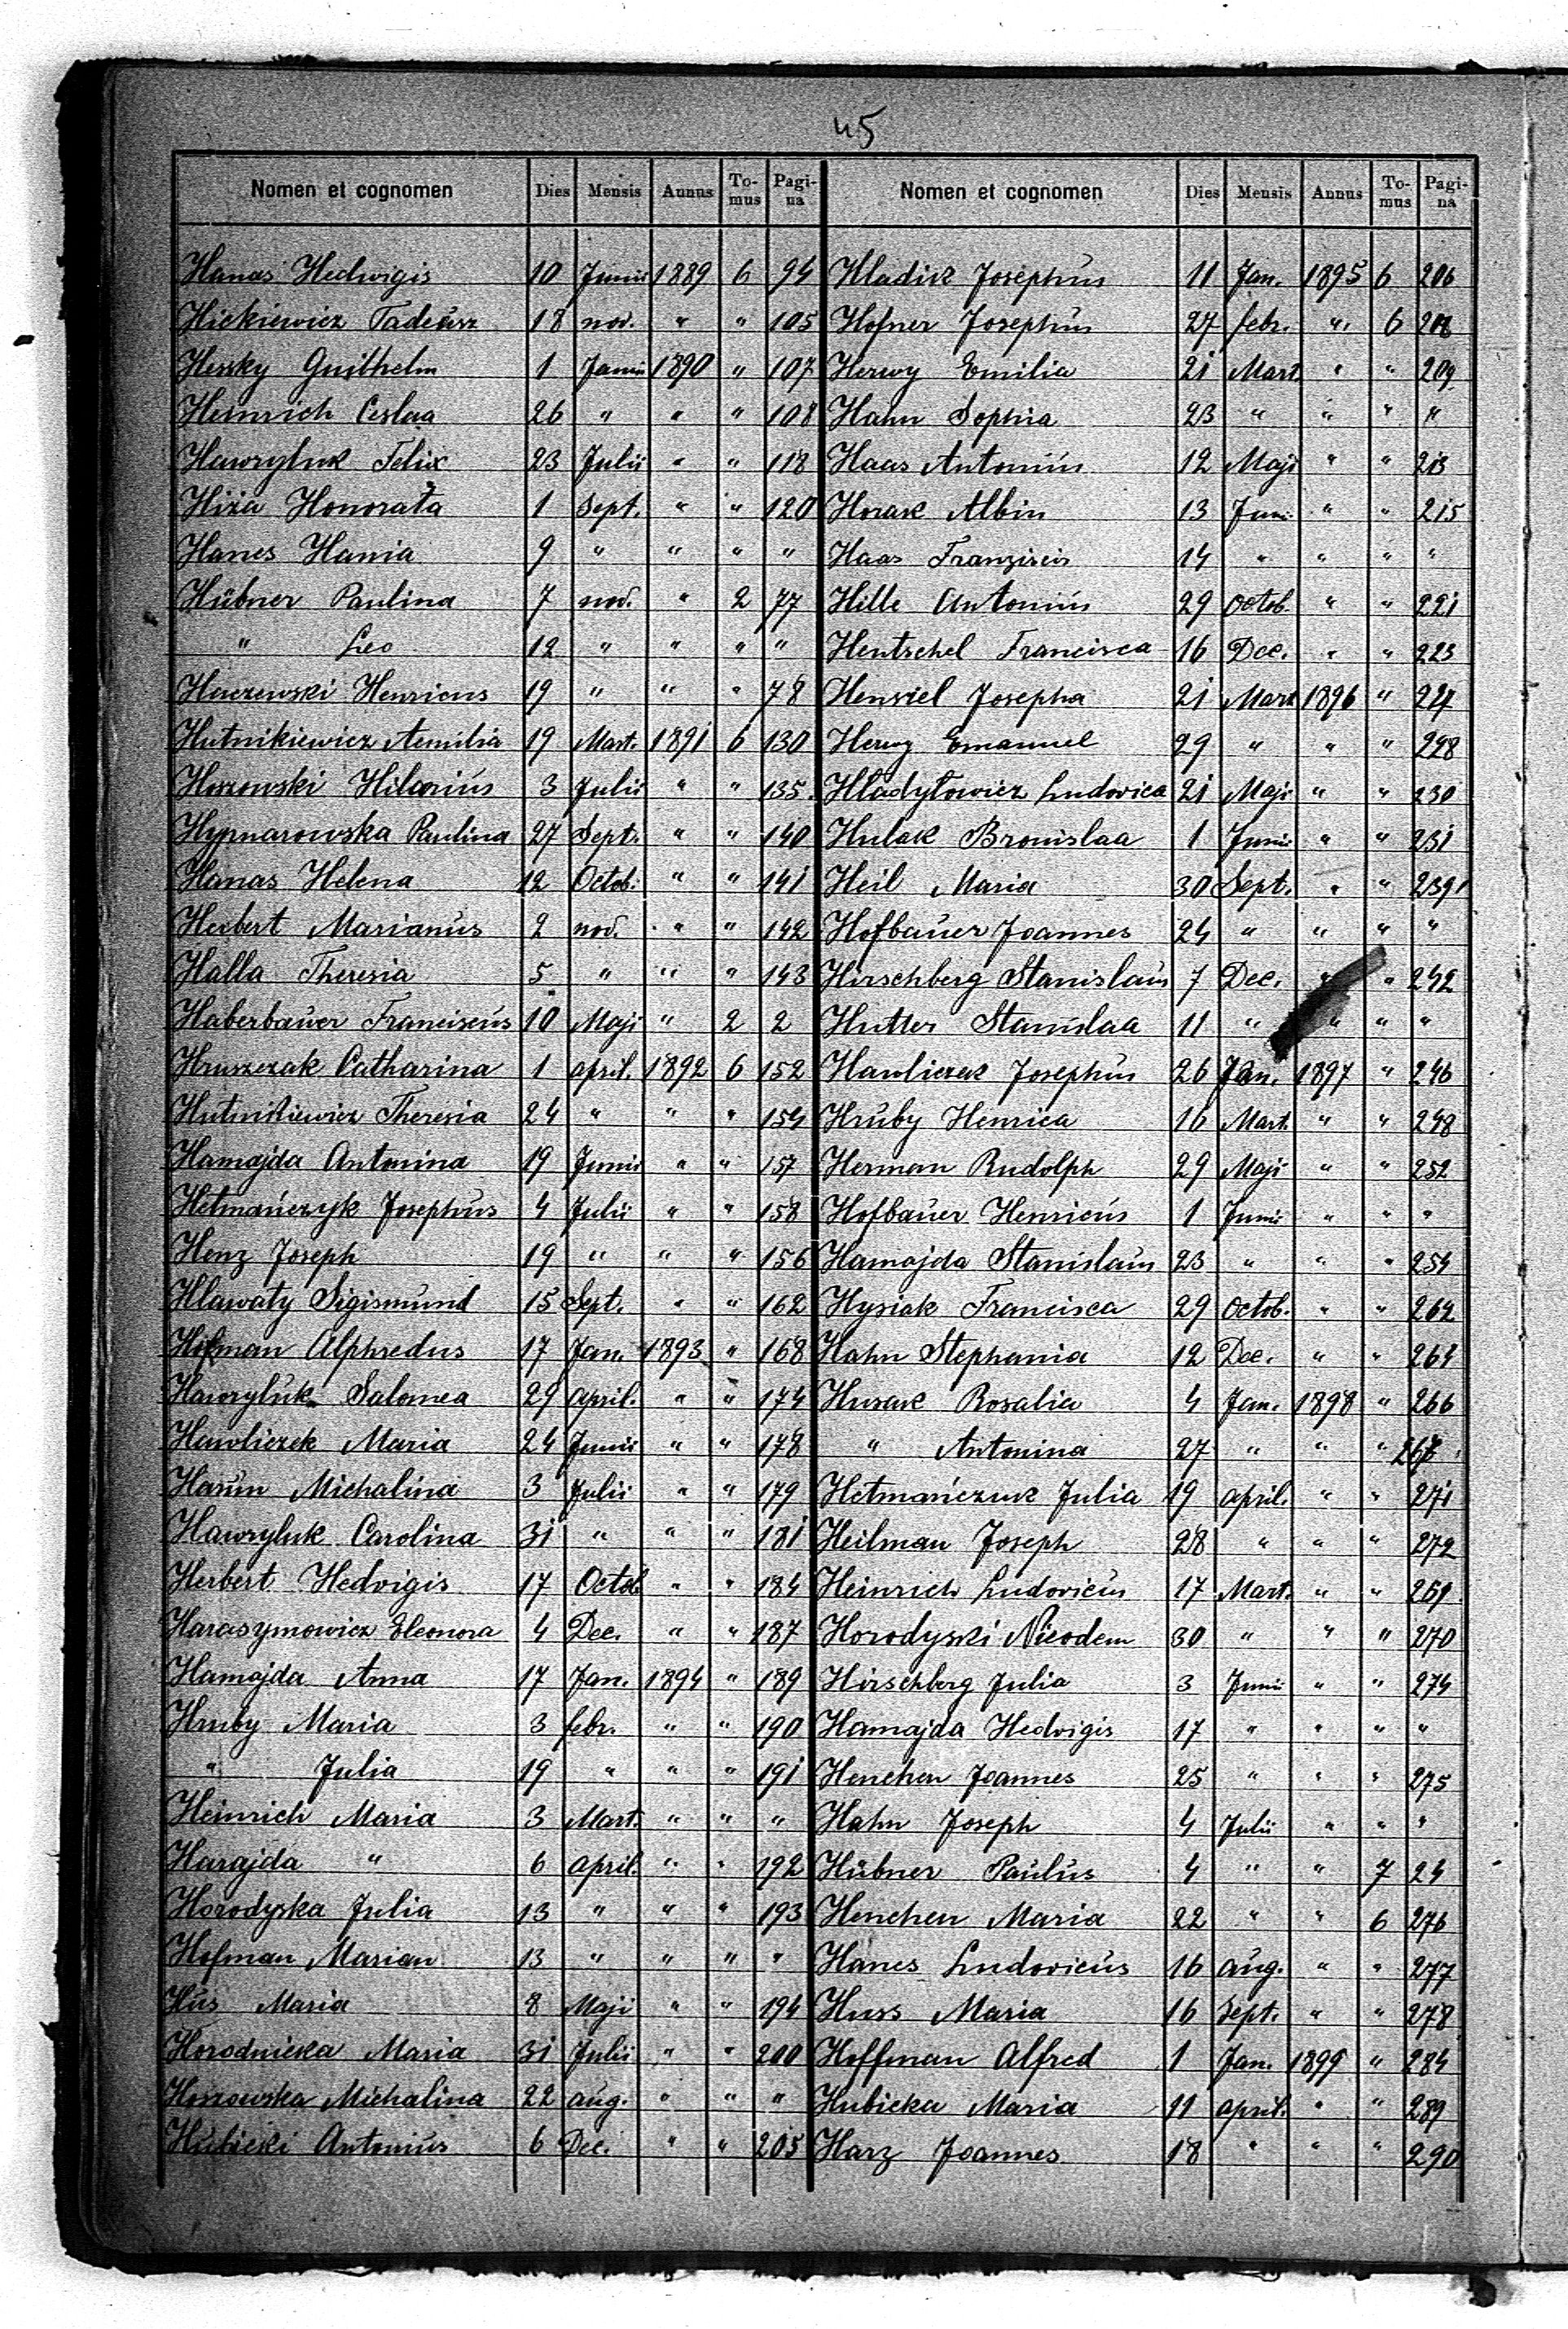 45
Nomen et cognomen Dies Mensis Annus To-mus Pagi-na
Hanas Hedwigis 10 Junii 1889 6 94
Hickiewicz Tadeusz 18 nov. " " 105
Hessky Guilhelm 1 Junii 1890 " 107
Heinrich Ceslaa 26 " " " 108
Hawryluk Felix 23 Julii " " 118
Hiża Honorata 1 Sept. " " 120
Hanes Hania 9 " " " "
Hübner Paulina 7 nov. " 2 77
" Leo 12 " " " "
Haczewski Henricus 19 " " " 78
Hutnikiewicz Aemilia 19 Mart. 1891 6 130
Hoszowski Hilarius 3 Julii " " 135
Hypnarowska Paulina 27 Sept. " " 140
Hanas Helena 12 Octob. " " 141
Herbert Marianus 2 nov. " " 142
Halla Theresia 5 " " " 143
Haberbauer Franciscus 10 Maji " 2 2
Hruszczak Catharina 1 april. 1892 6 152
Hutnikiewicz Theresia 24 " " " 154
Hamajda Antonina 19 Junii " " 157
Hetmańczyk Josephus 4 Julii " " 158
Henz Joseph 19 " " " 156
Hlawaty Sigismund 15 Sept. " " 162
Hofman Alphredus 17 Jan. 1893 " 168
Hawryluk Salomea 29 april. " " 174
Hawliczek Maria 24 Junii " " 178
Harun Michalina 3 Julii " " 179
Hawryluk Carolina 31 " " " 181
Herbert Hedvigis 17 Octob " " 184
Harasymowicz Eleonora 4 Dec. " " 187
Hamajda Anna 17 Jan. 1894 " 189
Hruby Maria 3 febr. " " 190
" Julia 19 " " " 191
Heinrich Maria 3 Mart. " " "
Harajda " 6 april. " " 192
Horodyska Julia 13 " " " 193
Hofman Marian 13 " " " "
Hus Maria 8 Maji " " 194
Horodnicka Maria 31 Julii " " 200
Hoszowska Michalina 22 aug. " " "
Hubicki Antonius 6 Dec. " " 205
Nomen et cognomen Dies Mensis Annus To-mus Pagi-na
Hladik Josephus 11 Jan. 1895 6 206
Hofner Josephus 27 febr. " 6 208
Herwy Emilia 21 Mart. " " 209
Hahn Sophia 23 " " " "
Haas Antonius 12 Maji " " 213
Horak Albin 13 Juni " " 215
Haas Franziscus 14 " " " "
Hille Antonius 29 Octob. " " 221
Hentschel Francisca 16 Dec. " " 223
Hensiel Josepha 21 Mart 1896 " 227
Herwy Emanuel 29 " " " 228
Hładyłowicz Ludovica 21 Maji " " 230
Hulak Bronislaa 1 Junii " " 231
Heil Maria 30 Sept. " " 239
Hofbauer Joannes 24 " " " "
Hirschberg Stanislaus 7 Dec. " " 242
Hutter Stanislaa 11 " " " "
Hawliczek Josephus 26 Jan. 1897 " 246
Hruby Henrica 16 Mart. " " 248
Herman Rudolph 29 Maji " " 252
Hofbauer Henricus 1 Junii " " "
Hamajda Stanislaus 23 " " " 254
Hysiak Francisca 29 Octob. " " 262
Hahn Stephania 12 Dec. " " 264
Husak Rosalia 4 Jan. 1898 " 266
" Antonina 27 " " " 267
Hetmańczuk Julia 19 april. " " 271
Heilman Joseph 28 " " " 272
Heinrich Ludovicus 17 Mart. " " 269
Horodyski Nicodem 30 " " " 270
Hirschberg Julia 3 Junii " " 274
Hamajda Hedvigis 17 " " " "
Henchen Joannes 25 " " " 275
Hahn Joseph 4 Julii " " "
Hübner Paulus 4 " " 7 24
Henchen Maria 22 " " 6 276
Hanes Ludovicus 16 aug. " " 277
Huss Maria 16 Sept. " " 278
Hoffman Alfred 1 Jan. 1899 " 284
Hubicka Maria 11 april. " " 289
Harz Joannes 18 " " " 290